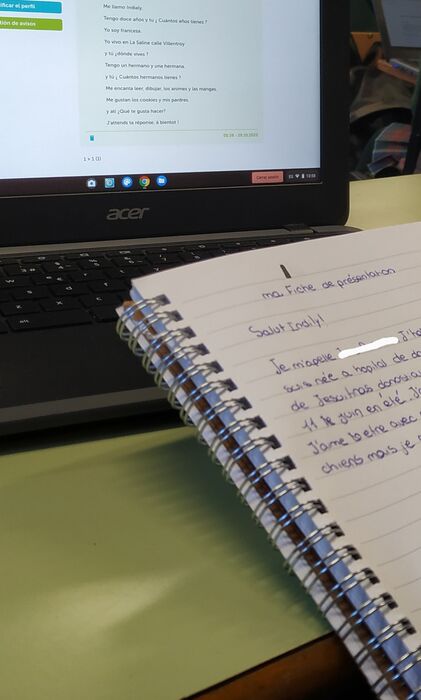 ificar el perfil
tión de avisos
Me llamo Indialy.
Tengo doce años y tu ¿ Cuántos años tienes ?
Yo soy francesa.
Yo vivo en La Saline calle Villentroy
y tú ¿dónde vives ?
Tengo un hermano y une hermana.
y tú ¿ Cuántos hermanos tienes ?
Me encanta leer, dibujar, los animes y las mangas.
Me gustan los cookies y mis pardres.
y ati ¿Qué te gusta hacer?
J'attends ta réponse, à bientot !
1 > 1 (1)
Cerrar sesión
ES
acer
ma Fiche de présentation
Salut Indily!
Je m'apelle
suis née a hopital de
de Jesu,
11 de juin en été.
J'aime
etre avec
chiens mais je